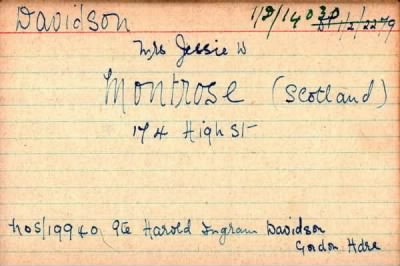 Davidson 1/D/14030
D1/1/2/2279
Mrs Jessie W
Montrose (Scotland)
174 High St
nos/19940 Pte Harold Ingram Davidson
Gordon Hdrs